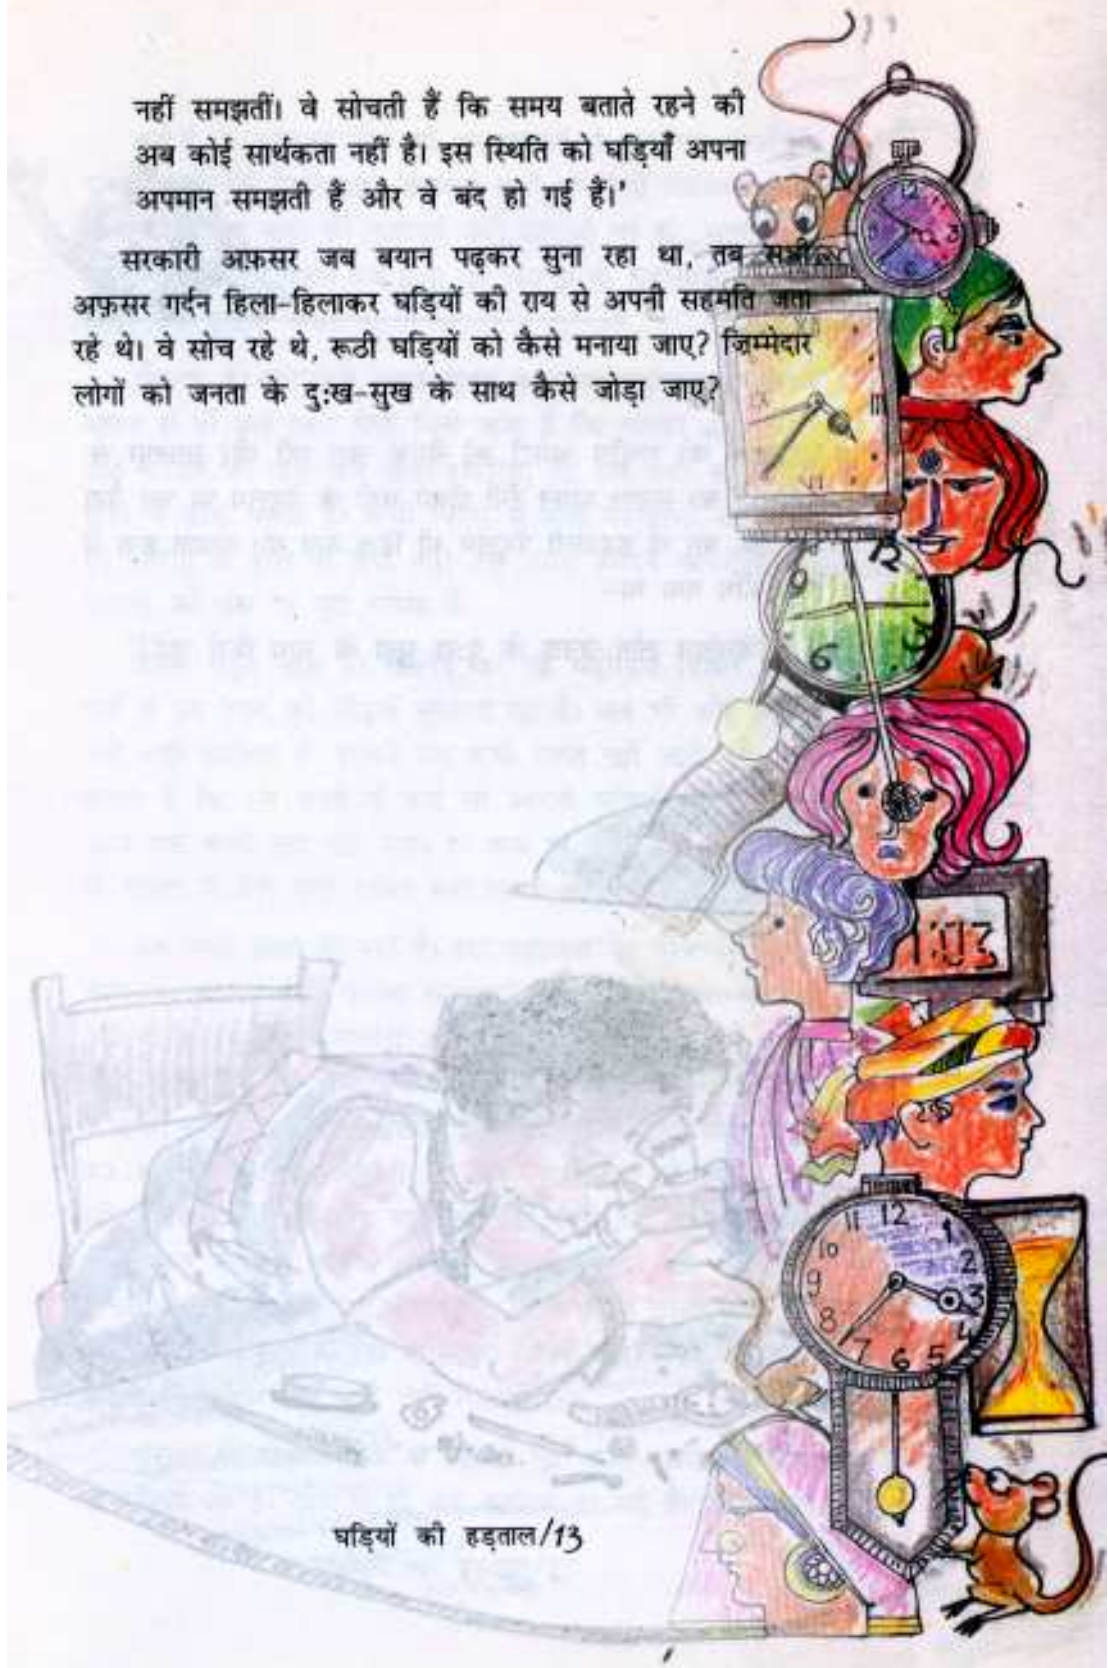 नहीं समझतीं। वे सोचती हैं कि समय बताते रहने की
अब कोई सार्थकता नहीं है। इस स्थिति को घड़ियाँ अपना
अपमान समझती हैं और वे बंद हो गई हैं।'
सरकारी अफ़सर जब बयान पढ़कर सुना रहा था, तब सभी
अफ़सर गर्दन हिला-हिलाकर घड़ियों की राय से अपनी सहमति जता
रहे थे। वे सोच रहे थे, रूठी घड़ियों को कैसे मनाया जाए? ज़िम्मेदार
लोगों को जनता के दुःख-सुख के साथ कैसे जोड़ा जाए?
12
3
6
III
12
9
6
1:03
11 12 1
10 2
9 3
8 4
7 6 5
घड़ियों की हड़ताल/13